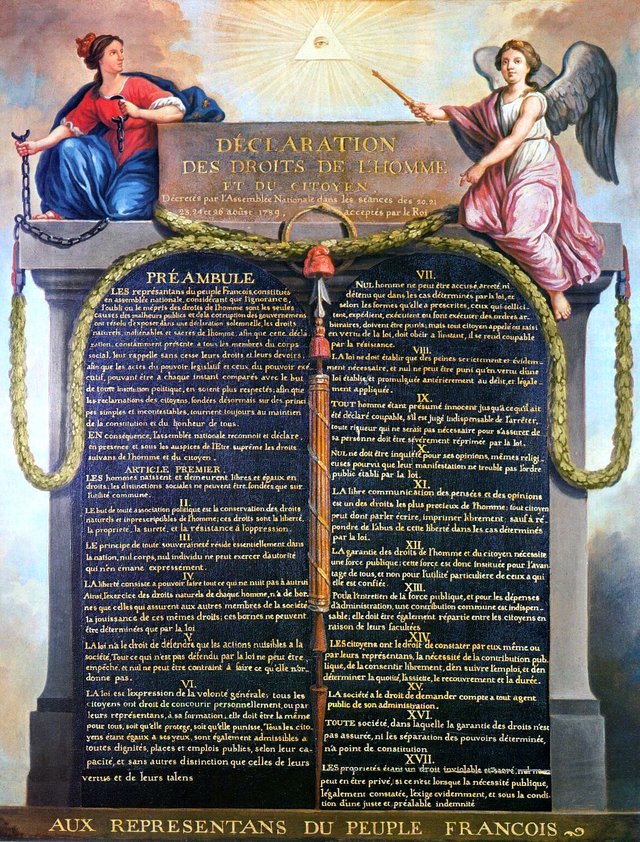 DÉCLARATION
DES DROITS DE L'HOMME
ET DU CITOYEN,
Décretés par l'Assemblée Nationale dans les séances des 20, 21
23, 24 et 26 août 1789, acceptés par le Roi
PRÉAMBULE
LES représentans du peuple François, constitués
en assemblée nationale, considérant que l'ignorance,
l'oubli ou le mépris des droits de l'homme sont les seules
causes des malheurs publics et de la corruption des gouvernemens
ont résolu d'exposer dans une déclaration solemnelle, les droits
naturels, inaliénables et sacrés de l'homme, afin que cette décla
ration, constamment présente a tous les membres du corps
social, leur rappelle sans cesse leurs droits et leurs devoirs,
afin que les actes du pouvoir législatif et ceux du pouvoir exé-
cutif, pouvant être a chaque instant comparés avec le but
de toute institution politique, en soient plus respectés; afin que
les reclamations des citoyens, fondées désormais sur des princi
pes simples et incontestables, tournent toujours au maintien
de la constitution et du bonheur de tous.
EN conséquence, l'assemblée nationale reconnoit et déclare,
en presence et sous les auspices de l'Etre suprême les droits
suivans de l'homme et du citoyen.
ARTICLE PREMIER.
LES hommes naissent et demeurent libres et égaux en
droits; les distinctions sociales ne peuvent être fondées que sur
l'utilité commune.
II.
LE but de toute association politique est la conservation des droits
naturels et inprescriptibles de l'homme; ces droits sont la liberté,
la proprieté, la sureté, et la résistance à l'oppression.
III.
LE principe de toute souveraineté réside essentiellement dans
la nation, nul corps, nul individu ne peut exercer d'autorité
qui n'en émane expressement.
IV.
LA liberté consiste a pouvoir faire tout ce qui ne nuit pas à autrui
Ainsi, l'exercice des droits naturels de chaque homme, n'a de bor-
nes que celles qui assurent aux autres membres de la société
la jouissance de ces mêmes droits; ces bornes ne peuvent
être déterminées que par la loi
V.
LA loi n'a le droit de défendre que les actions nuisibles a la
société. Tout ce qui n'est pas défendu par la loi ne peut être
empêché, et nul ne peut être contraint à faire ce qu'elle n'or-
donne pas.
VI.
LA loi est l'expression de la volonté générale; tous les
citoyens ont droit de concourir personnellement, ou par
leurs représentans, à sa formation; elle doit être la même
pour tous, soit qu'elle protege, soit qu'elle punisse, Tous les cito-
yens étant égaux à ses yeux, sont également admissibles a
toutes dignités, places et emplois publics, selon leur ca-
pacité, et sans autres distinction que celles de leurs
vertus et de leurs talens
VII.
NUL homme ne peut être accusé, arreté, ni
détenu que dans les cas déterminés par la loi, et
selon les formes qu'elle a prescrites, ceux qui sollici-
tent, expédient, exécutent ou font exécuter des ordres ar-
bitraires, doivent être punis; mais tout citoyen appelé ou saisi
en vertu de la loi, doit obéir a l'instant, il se rend coupable
par la résistance.
VIII.
LA loi ne doit établir que des peines strictement et évidem-
ment nécessaire, et nul ne peut être puni qu'en vertu d'une
loi établie et promulguée antérieurement au délit, et légale-
ment appliquée.
IX.
TOUT homme étant présumé innocent jusqu'a ce qu'il ait
été déclaré coupable, s'il est jugé indispensable de l'arrêter,
toute rigueur qui ne serait pas nécessaire pour s'assurer de
sa personne doit être sévèrement réprimée par la loi.
X.
NUL ne doit être inquiété pour ses opinions, mêmes religi-
euses pourvu que leur manifestation ne trouble pas l'ordre
public établi par la loi.
XI.
LA libre communication des pensées et des opinions
est un des droits les plus precieux de l'homme; tout citoyen
peut dont parler écrire, imprimer librement; sauf à ré-
pondre de l'abus de cette liberté dans les cas déterminés
par la loi.
XII.
LA garantie des droits de l'homme et du citoyen nécessite
une force publique; cette force est donc instituée pour l'avan-
tage de tous, et non pour l'utilité particuliere de ceux a qui
elle est confiée.
XIII.
Pour l'entretien de la force publique, et pour les dépenses
d'administration, une contribution commune est indispen-
sable; elle doit être également répartie entre les citoyens en
raison de leurs facultées
XIV.
LES citoyens ont le droit de constater par eux même ou
par leurs représentans, la nécessité de la contribution pub-
lique, de la consentir librement, d'en suivre l'emploi, et d'en
déterminer la quotité, l'assiette, le recouvrement et la durée.
XV.
LA société a le droit de demander compte a tout agent
public de son administration.
XVI.
TOUTE société, dans laquelle la garantie des droits n'est
pas assurée, ni les séparation des pouvoirs déterminée,
n'a point de constitution
XVII.
LES proprietés étant un droit inviolable et sacré, nul ne
peut en être privé, si ce n'est lorsque la nécessité publique,
légalement constatée, l'exige evidemment, et sous la condi-
tion d'une juste et préalable indemnité
AUX REPRESENTANS DU PEUPLE FRANCOIS